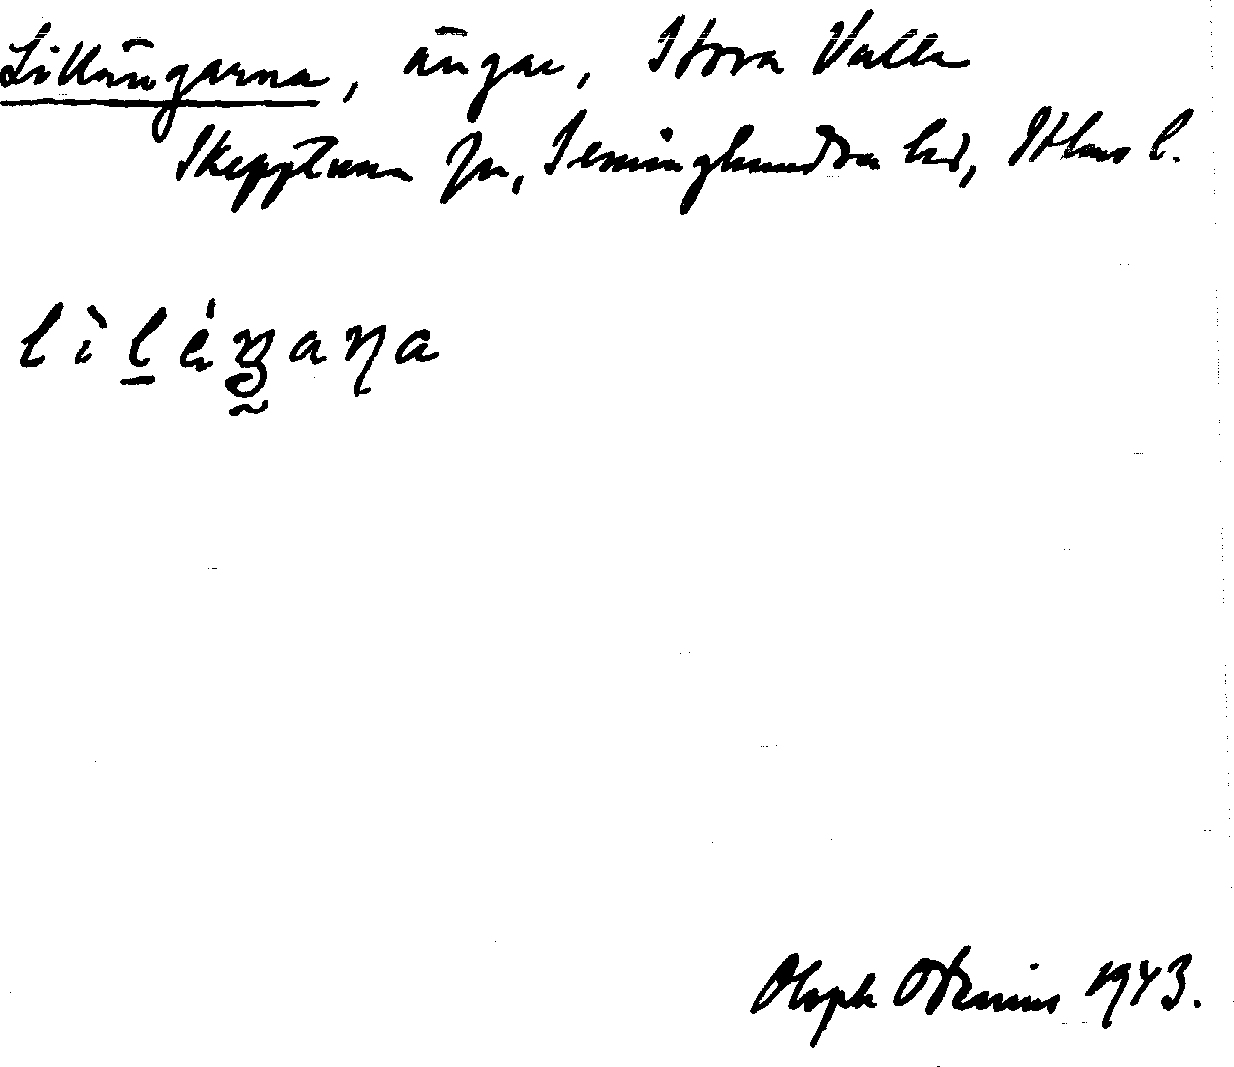 Lillängarna, ängar, Stora Valla
Skepptuna sn, Seminghundra hd, Sthms l.
lìḻéŋana
Oloph Odenius 1943.